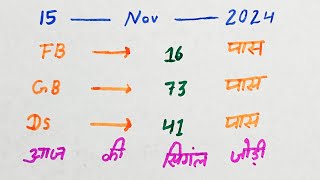 15 — Nov — 2024
FB → 16 पास
GB → 73 पास
Ds → 41 पास
आज की सिगंल जोड़ी